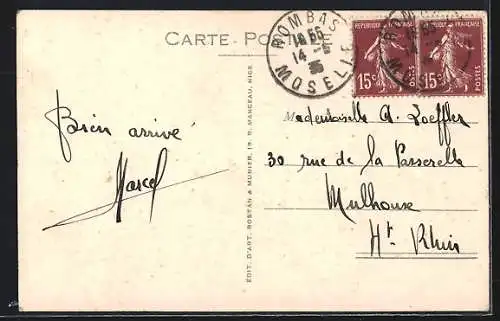 CARTE POSTALE
ROMBAS
MOSELLE
REPUBLIQUE FRANÇAISE
15c POSTES
REPUBLIQUE FRANÇAISE
15c POSTES
Bien arrivé
Marcel
ÉDIT. D'ART. ROSTAN & MUNIER, R. MANCEAU, NICE
Mademoiselle A. Loeffler
30 rue de la Passerelle
Mulhouse
Ht Rhin